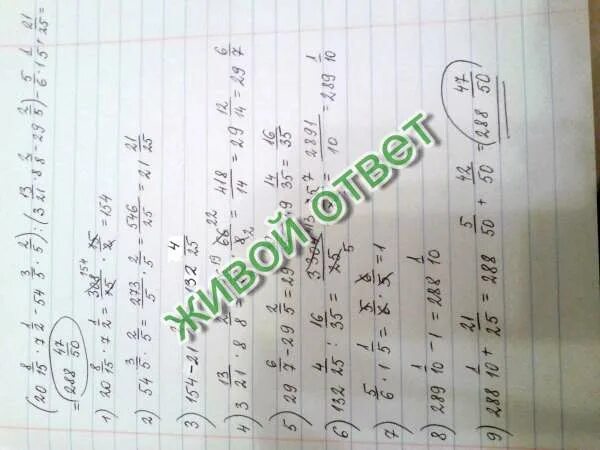 (20 8/15 · 7 1/2 - 54 3/5 · 2/5) : (3 13/21 · 8 - 29 2/5) - 5/6 · 1 1/5 + 21/25 =
= 288 47/50
1) 20 8/15 · 7 1/2 = 308/15 · 15/2 = 154
2) 54 3/5 · 2/5 = 273/5 · 2/5 = 546/25 = 21 21/25
3) 154 - 21 = 132 4/25
4) 3 13/21 · 8 = 418/14 = 29 12/14 = 29 6/7
5) 29 6/7 - 29 2/5 = 29 14/35 = 16/35
6) 132 4/25 : 16/35 = 2891/10 = 289 1/10
7) 5/6 · 1 1/5 = 5/6 · 6/5 = 1
8) 289 1/10 - 1 = 288 1/10
9) 288 1/10 + 21/25 = 288 5/50 + 42/50 = 288 47/50
ЖИВОЙ ОТВЕТ